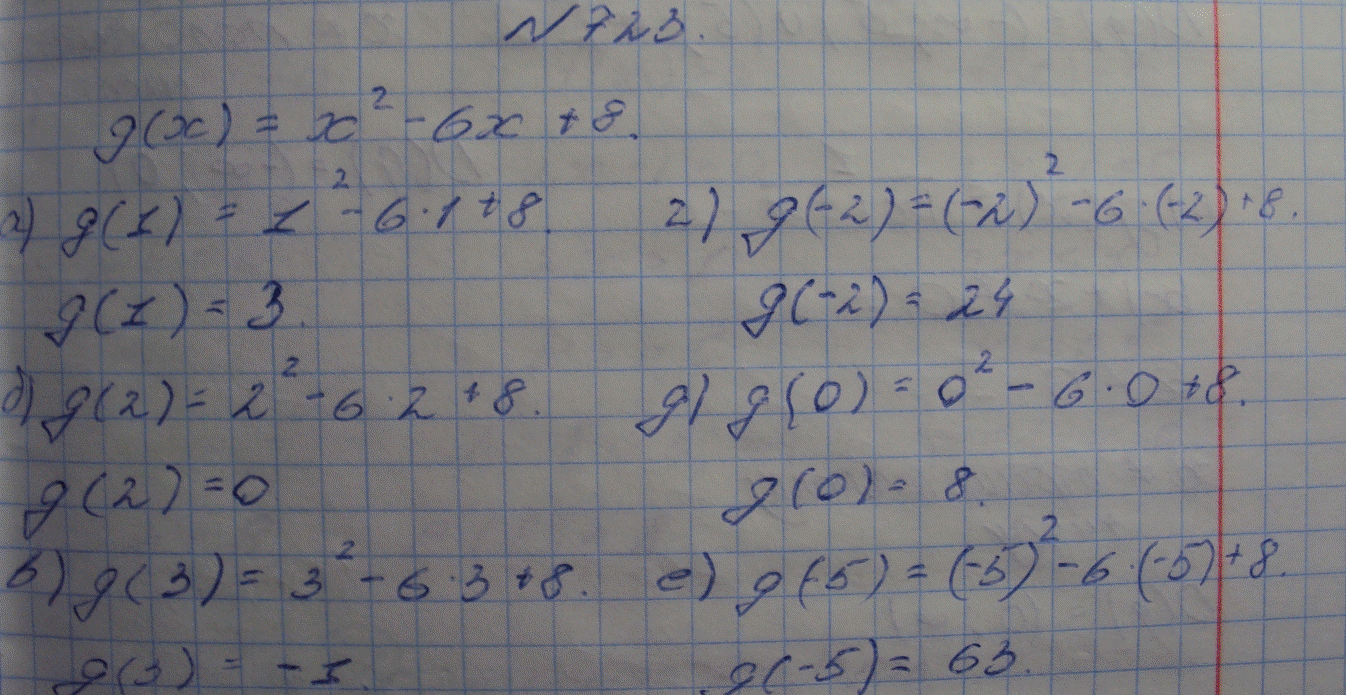 №723.
g(x) = x² - 6x + 8.
а) g(1) = 1² - 6·1 + 8.
g(1) = 3.
б) g(2) = 2² - 6·2 + 8.
g(2) = 0
в) g(3) = 3² - 6·3 + 8.
g(3) = -1.
г) g(-2) = (-2)² - 6·(-2) + 8.
g(-2) = 24
д) g(0) = 0² - 6·0 + 8.
g(0) = 8.
е) g(-5) = (-5)² - 6·(-5) + 8.
g(-5) = 63.